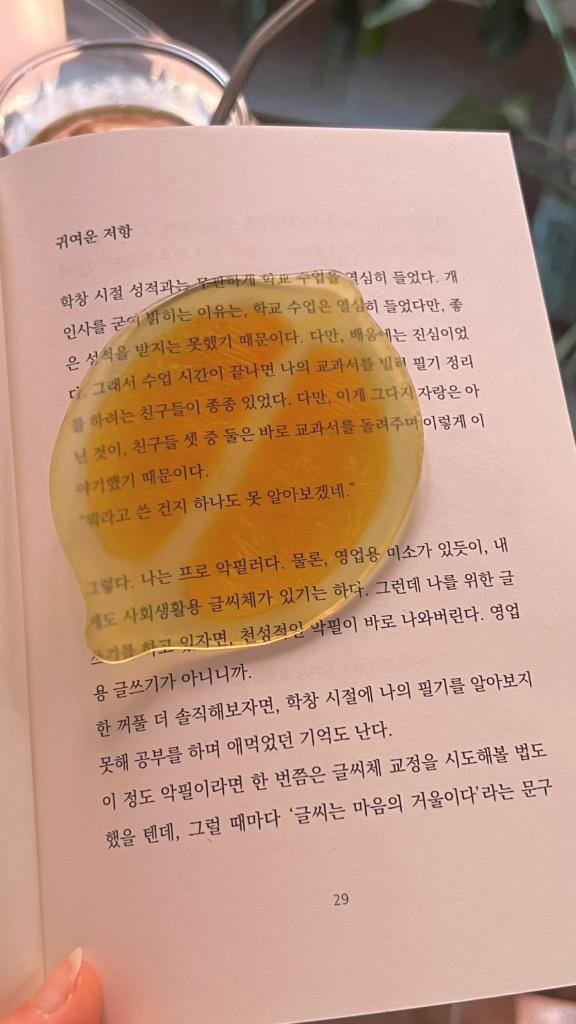 귀여운 저항
학창 시절 성적과는 무관하게 학교 수업을 열심히 들었다. 개
인사를 굳이 밝히는 이유는, 학교 수업은 열심히 들었다만, 좋
은 성적을 받지는 못했기 때문이다. 다만, 배움에는 진심이었
다. 그래서 수업 시간이 끝나면 나의 교과서를 빌려 필기 정리
를 하려는 친구들이 종종 있었다. 다만, 이게 그다지 자랑은 아
닌 것이, 친구들 셋 중 둘은 바로 교과서를 돌려주며 이렇게 이
야기했기 때문이다.
"뭐라고 쓴 건지 하나도 못 알아보겠네."
그렇다. 나는 프로 악필러다. 물론, 영업용 미소가 있듯이, 내
게도 사회생활용 글씨체가 있기는 하다. 그런데 나를 위한 글
쓰기를 하고 있자면, 천성적인 악필이 바로 나와버린다. 영업
용 글쓰기가 아니니까.
한 꺼풀 더 솔직해보자면, 학창 시절에 나의 필기를 알아보지
못해 공부를 하며 애먹었던 기억도 난다.
이 정도 악필이라면 한 번쯤은 글씨체 교정을 시도해볼 법도
했을 텐데, 그럴 때마다 ‘글씨는 마음의 거울이다’라는 문구
29